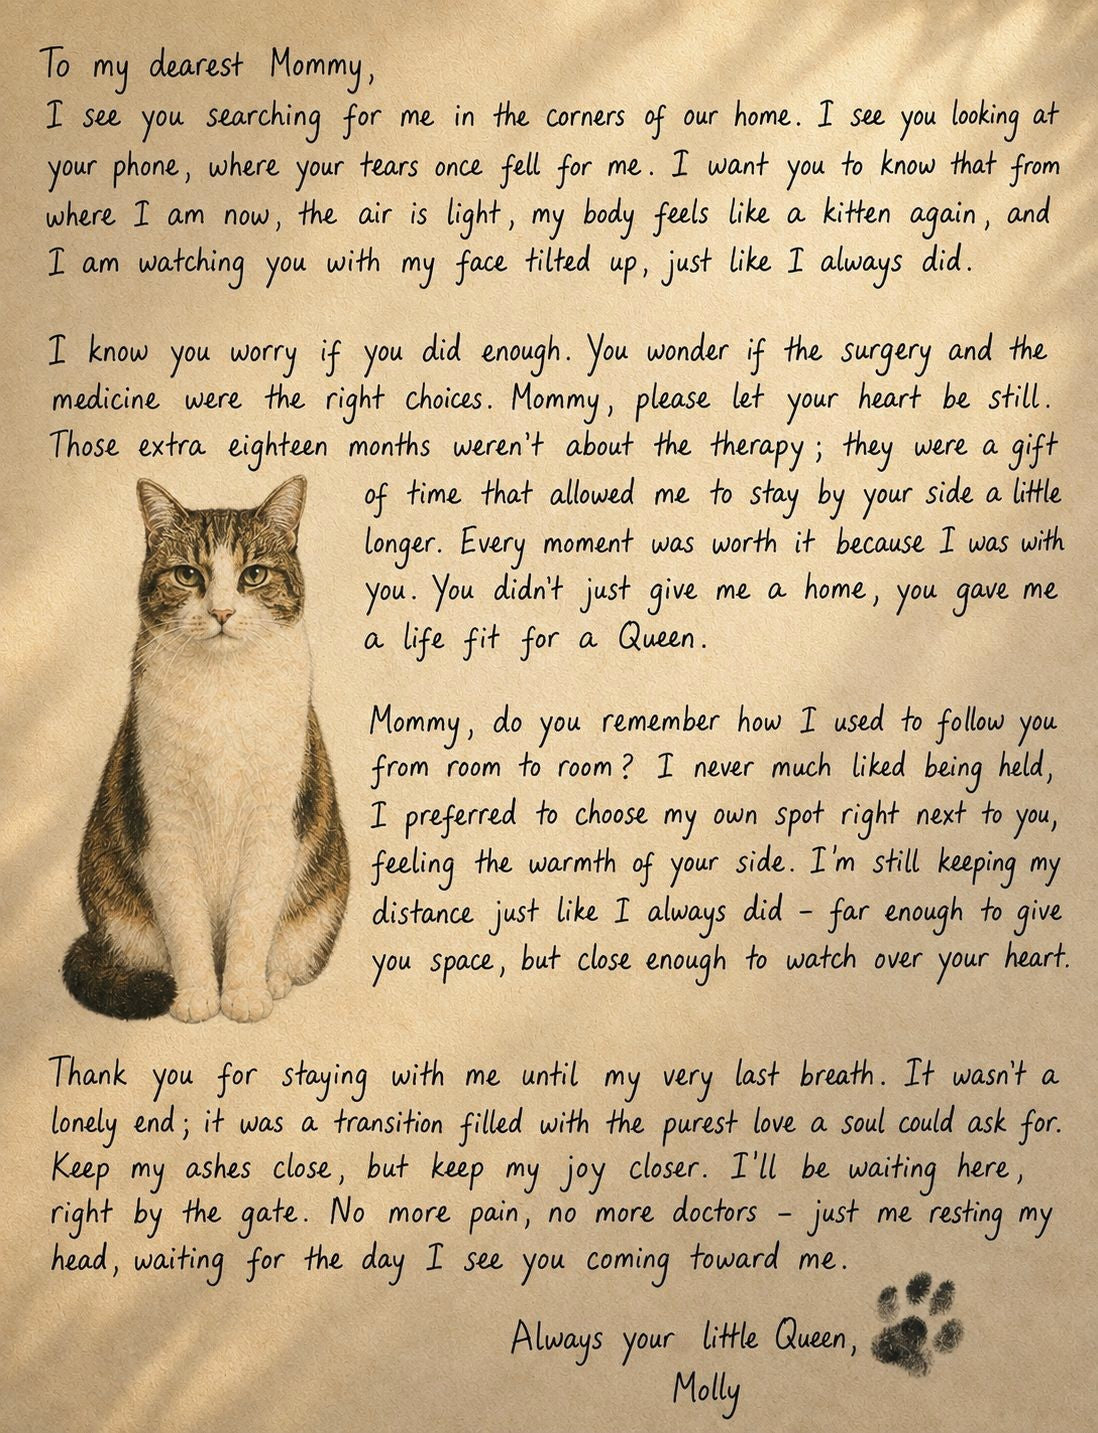 To my dearest Mommy,
I see you searching for me in the corners of our home. I see you looking at
your phone, where your tears once fell for me. I want you to know that from
where I am now, the air is light, my body feels like a kitten again, and
I am watching you with my face tilted up, just like I always did.
I know you worry if you did enough. You wonder if the surgery and the
medicine were the right choices. Mommy, please let your heart be still.
Those extra eighteen months weren't about the therapy; they were a gift
of time that allowed me to stay by your side a little
longer. Every moment was worth it because I was with
you. You didn't just give me a home, you gave me
a life fit for a Queen.
Mommy, do you remember how I used to follow you
from room to room? I never much liked being held,
I preferred to choose my own spot right next to you,
feeling the warmth of your side. I'm still keeping my
distance just like I always did – far enough to give
you space, but close enough to watch over your heart.
Thank you for staying with me until my very last breath. It wasn't a
lonely end; it was a transition filled with the purest love a soul could ask for.
Keep my ashes close, but keep my joy closer. I'll be waiting here,
right by the gate. No more pain, no more doctors – just me resting my
head, waiting for the day I see you coming toward me.
Always your little Queen,
Molly